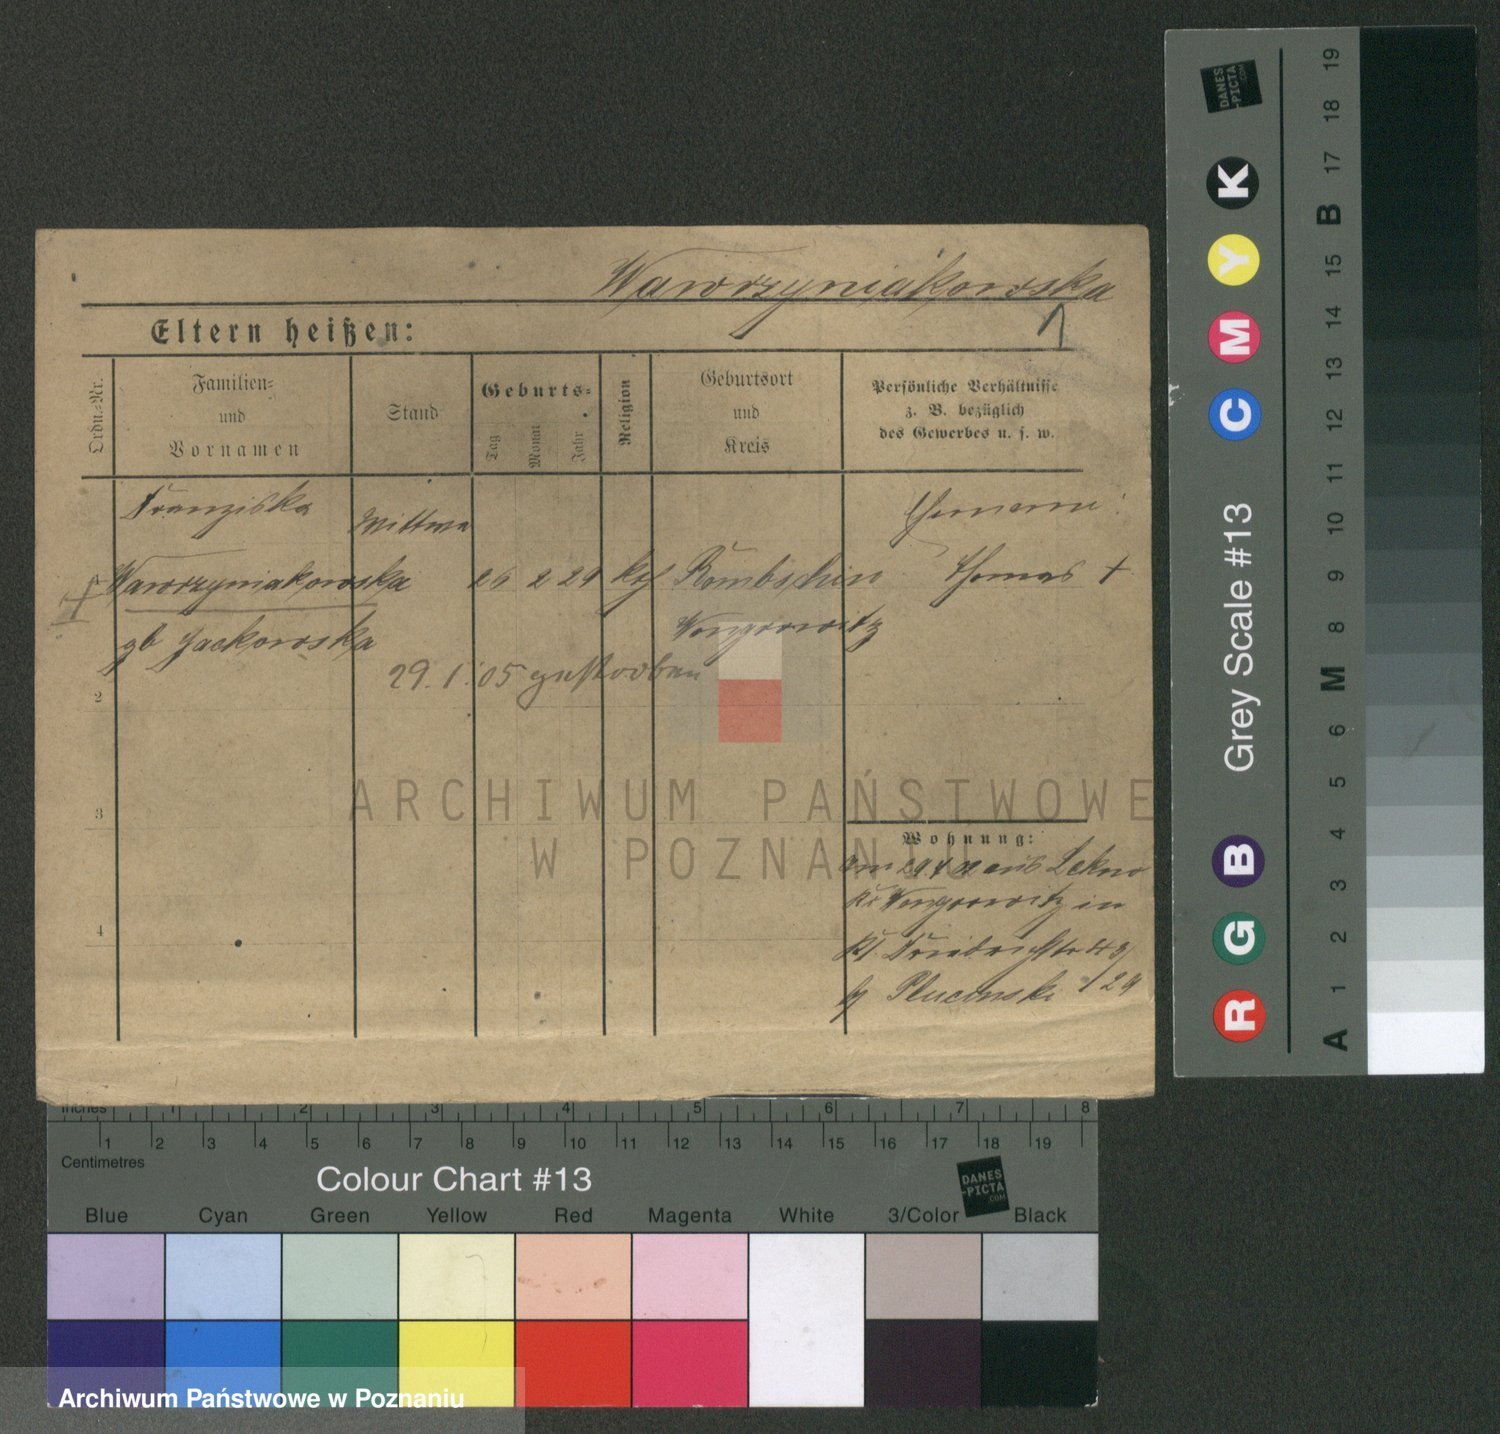 Wawrzyniakowska
Eltern heißen:
Ordn.-Nr.
Familien-
und
Vornamen
Stand
Geburts-
Tag
Monat
Jahr
Religion
Geburtsort
und
Kreis
Persönliche Verhältnisse
z. B. bezüglich
des Gewerbes u. s. w.
Franziska
Wittwe
Ehemann:
Wawrzyniakowska
26 2 29
kth
Rombschin
Thomas †
gb Jackowska
Wongrowitz
29. 1. 05 gestorben
2
3
4
Wohnung:
aus Lekno
Kr Wongrowitz in
Plucinski
ARCHIWUM PAŃSTWOWE
W POZNANIU
DANES
-PICTA
.COM
K
Y
M
C
B
G
R
Grey Scale #13
19
18
17
B
15
14
13
12
11
10
9
8
M
6
5
4
3
2
1
A
Inches 1 2 3 4 5 6 7 8
1 2 3 4 5 6 7 8 9 10 11 12 13 14 15 16 17 18 19
Centimetres
Colour Chart #13
DANES
-PICTA
.COM
Blue Cyan Green Yellow Red Magenta White 3/Color Black
Archiwum Państwowe w Poznaniu